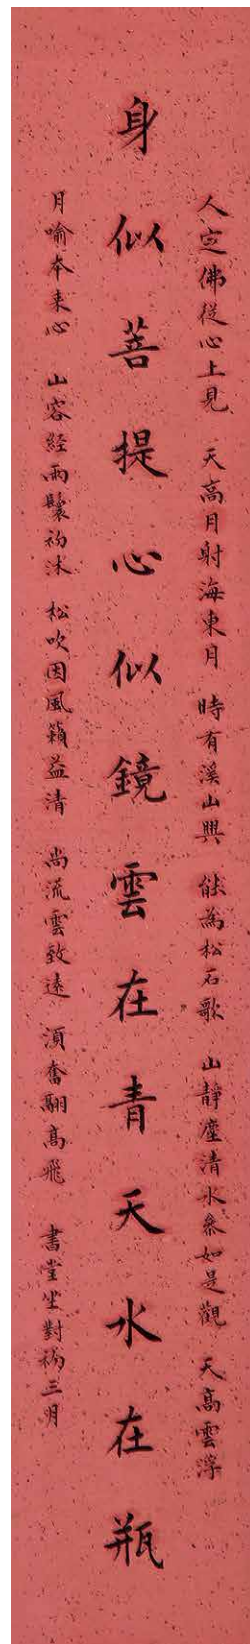 人定佛從心上見 天高月射海東月 時有溪山興 能為松石歌 山靜塵清水參如是觀 天高雲浮
身似菩提心似鏡雲在青天水在瓶
月喻本來心 山容經雨鬟初沐 松吹因風籟益清 尚流雲致遠 須奮翮高飛 書堂坐對初三月